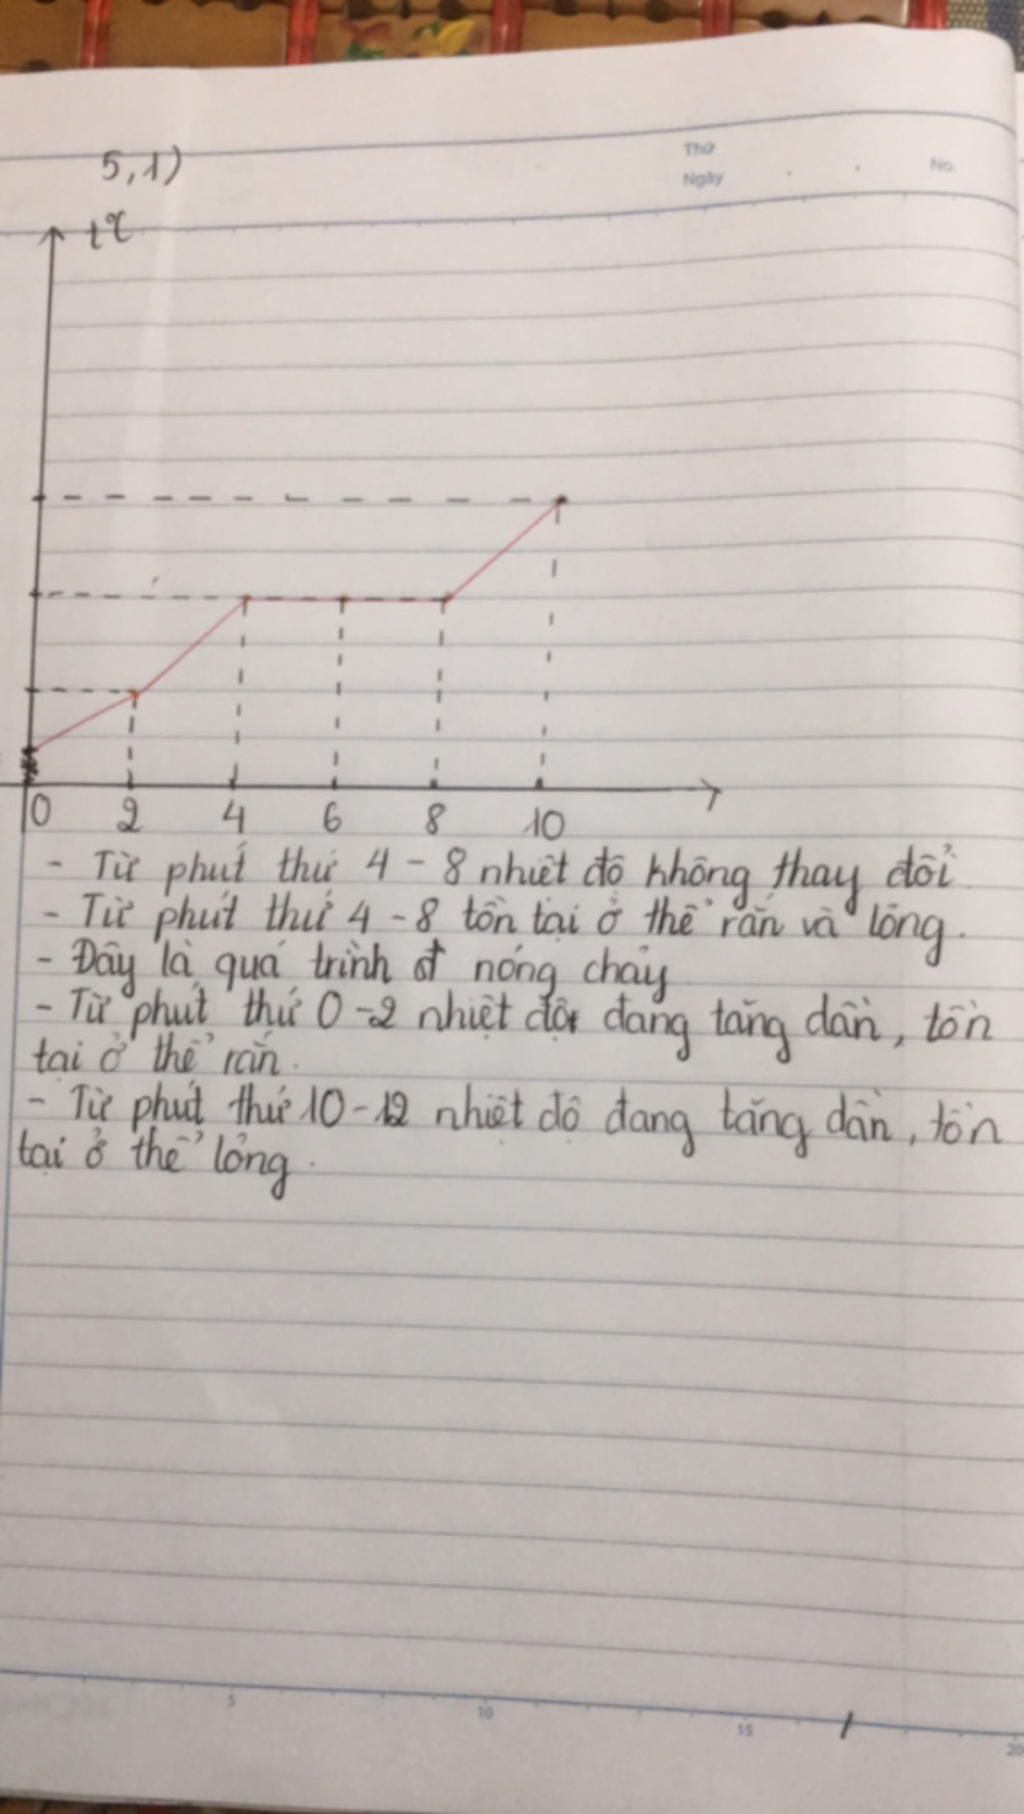 5,1)
Thứ
Ngày
No.
t°C
0 2 4 6 8 10
- Từ phút thứ 4 - 8 nhiệt độ không thay đổi
- Từ phút thứ 4 - 8 tồn tại ở thể rắn và lỏng.
- Đây là quá trình nóng chảy
- Từ phút thứ 0 - 2 nhiệt độ đang tăng dần, tồn
tại ở thể rắn.
- Từ phút thứ 10 - 12 nhiệt độ đang tăng dần, tồn
tại ở thể lỏng.
5 10 15 20